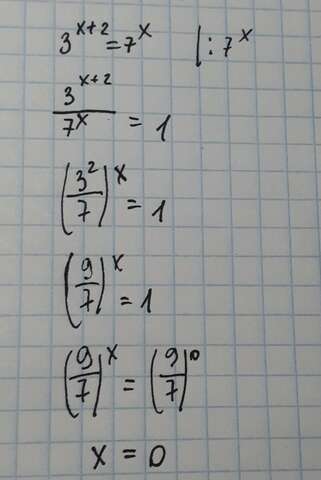 3^{x+2} = 7^x | : 7^x
\frac{3^{x+2}}{7^x} = 1
\left(\frac{3^2}{7}\right)^x = 1
\left(\frac{9}{7}\right)^x = 1
\left(\frac{9}{7}\right)^x = \left(\frac{9}{7}\right)^0
x = 0